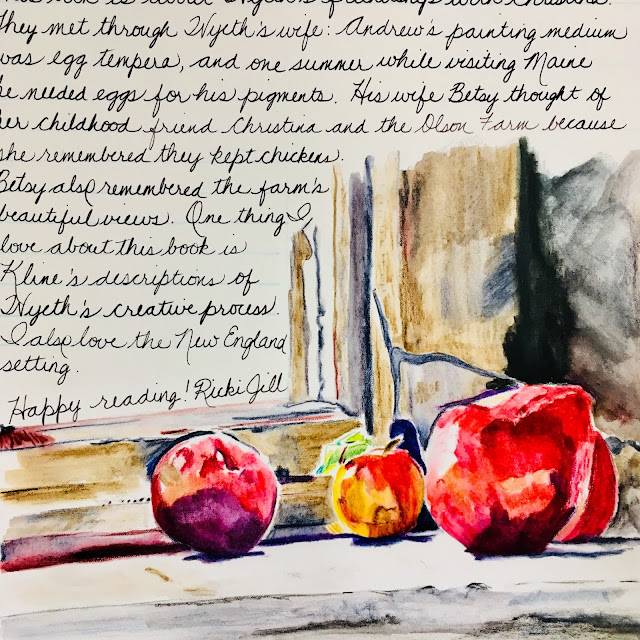 This book is about Wyeth's friendship with Christina.
They met through Wyeth's wife: Andrew's painting medium
was egg tempera, and one summer while visiting Maine
he needed eggs for his pigments. His wife Betsy thought of
her childhood friend Christina and the Olson Farm because
she remembered they kept chickens.
Betsy also remembered the farm's
beautiful views. One thing I
love about this book is
Kline's descriptions of
Wyeth's creative process.
I also love the New England
setting.
Happy reading! Ricki Jill